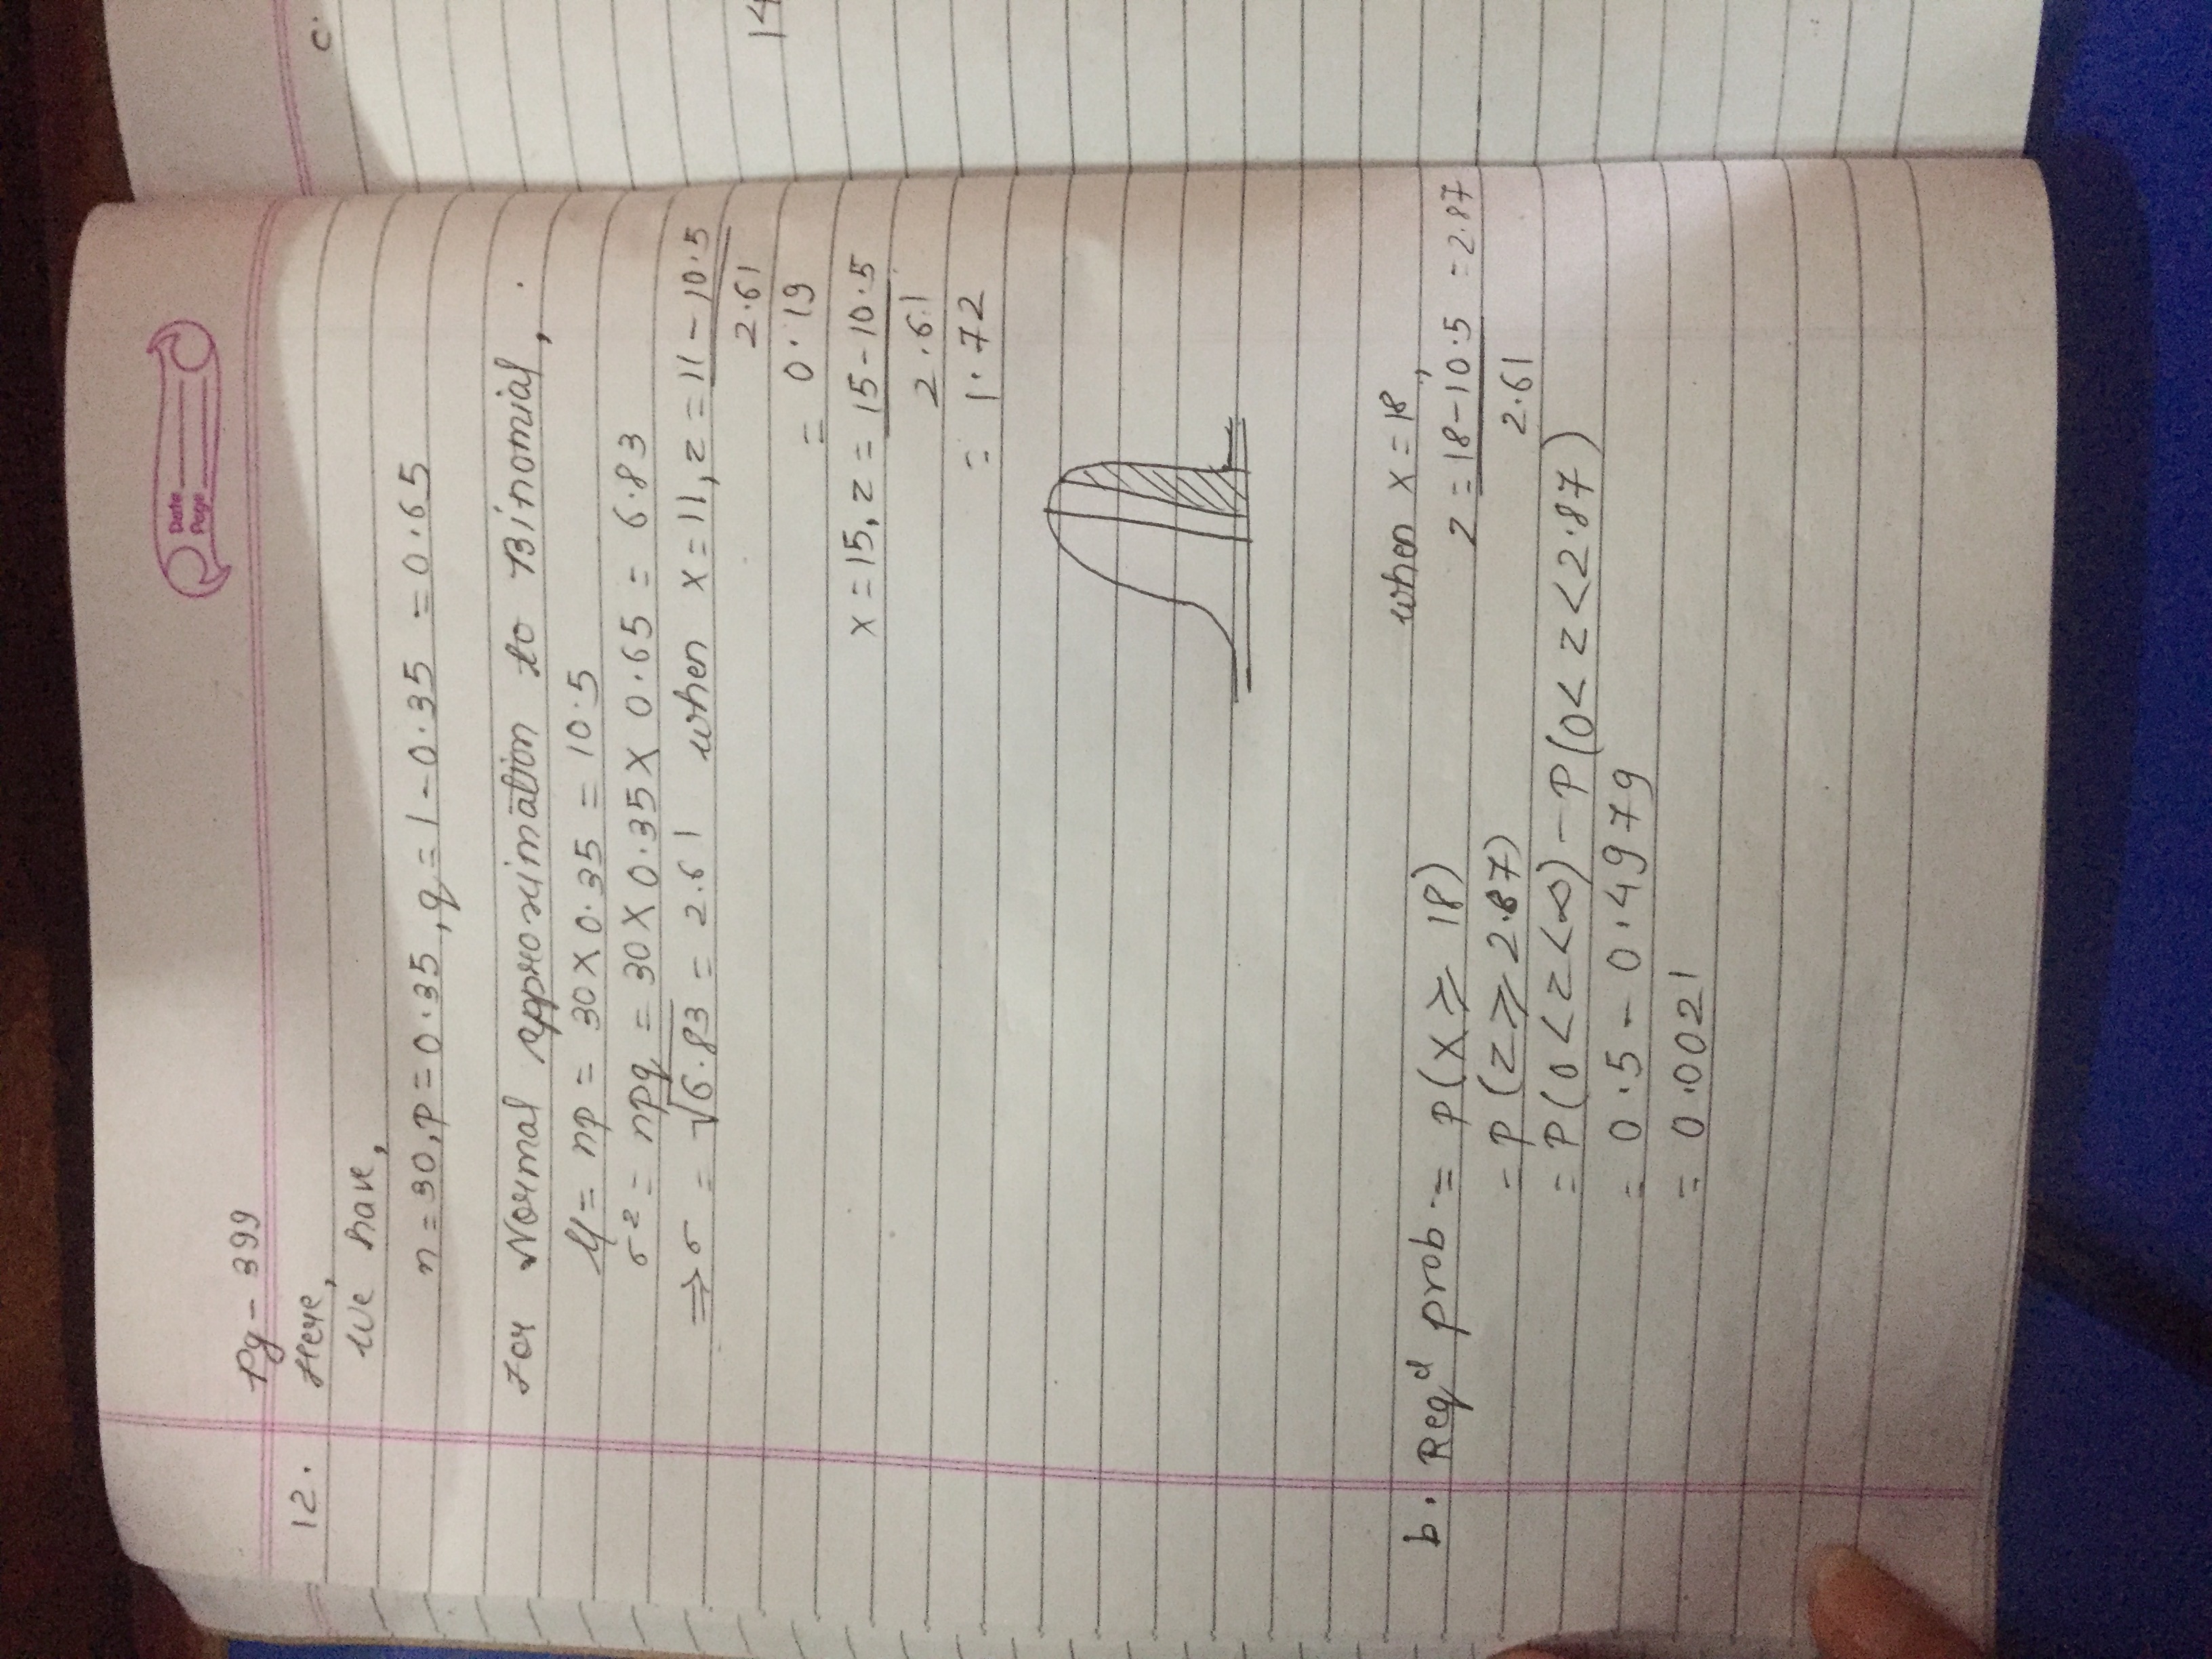 Date
Page
Pg - 399
12. Here,
We have,
n = 30, p = 0.35, q = 1 - 0.35 = 0.65
For Normal approximation to Binomial,
μ = np = 30 × 0.35 = 10.5
σ² = npq = 30 × 0.35 × 0.65 = 6.83
⇒ σ = √6.83 = 2.61 when x = 11, z = 11 - 10.5
2.61
= 0.19
x = 15, z = 15 - 10.5
2.61
= 1.72
when x = 18,
b. Reqᵈ prob. = P(X ≥ 18)
z = 18 - 10.5 = 2.87
2.61
= P(z ≥ 2.87)
= P(0 < z < ∞) - P(0 < z < 2.87)
= 0.5 - 0.4979
= 0.0021
c.
14